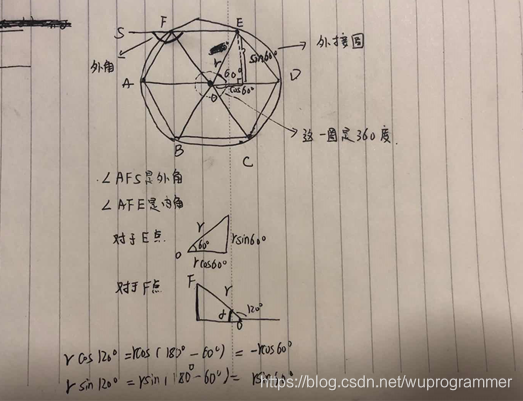 S
F
E
外角
r
60°
sin60°
外接圆
A
O
cos60°
D
B
C
这一圈是360度.
∠AFS是外角
∠AFE是内角
对于E点
r
60°
rsin60°
O
rcos60°
对于F点
F
r
120°
α
O
rcos120°=rcos(180°-60°)=-rcos60°
rsin120°=rsin(180°-60°)=rsin60°
https://blog.csdn.net/wuprogrammer